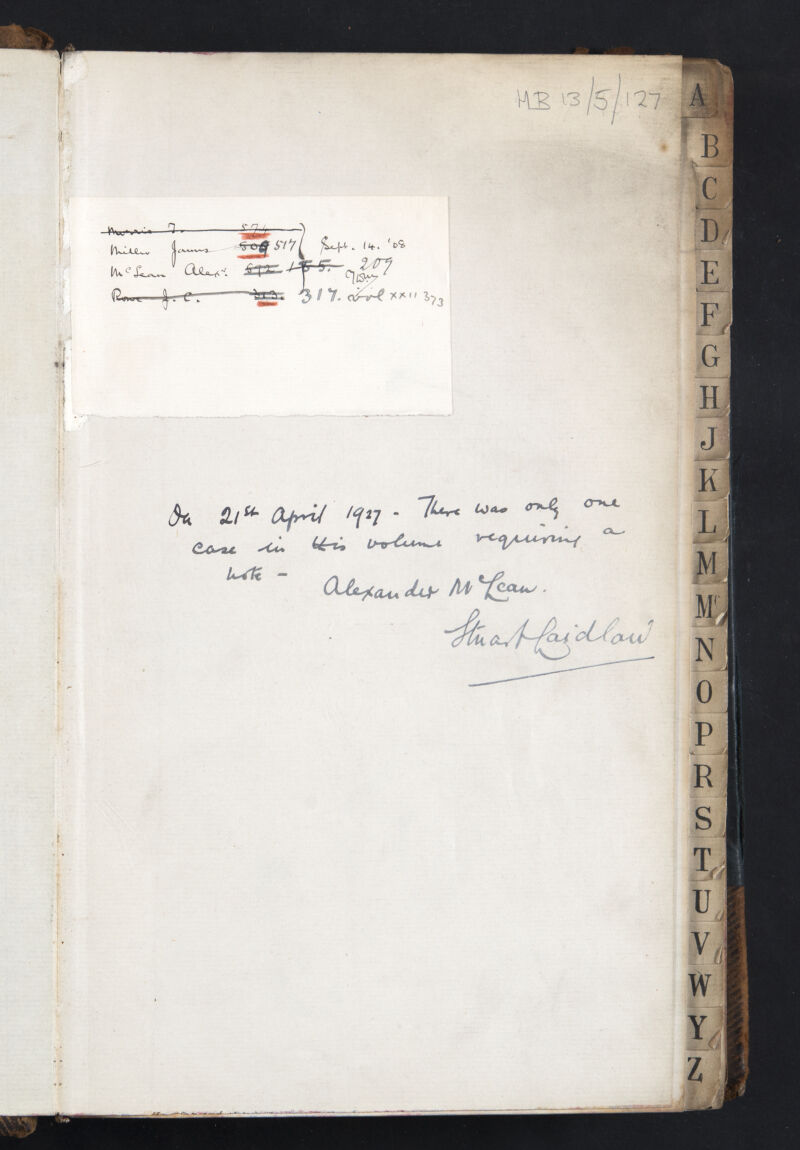 MB 13/5/127
Morris J. 574
Miller James 509 517 Sept. 14. '08
McLean Alexr. 592 155. 209
Rowe J. C. 313. 317. vol xxii 373
On 21st April 1927 - There was only one
case in this volume requiring a
note -
Alexander McLean.
Stuart Laidlaw
A
B
C
D
E
F
G
H
J
K
L
M
Mc
N
O
P
R
S
T
U
V
W
Y
Z